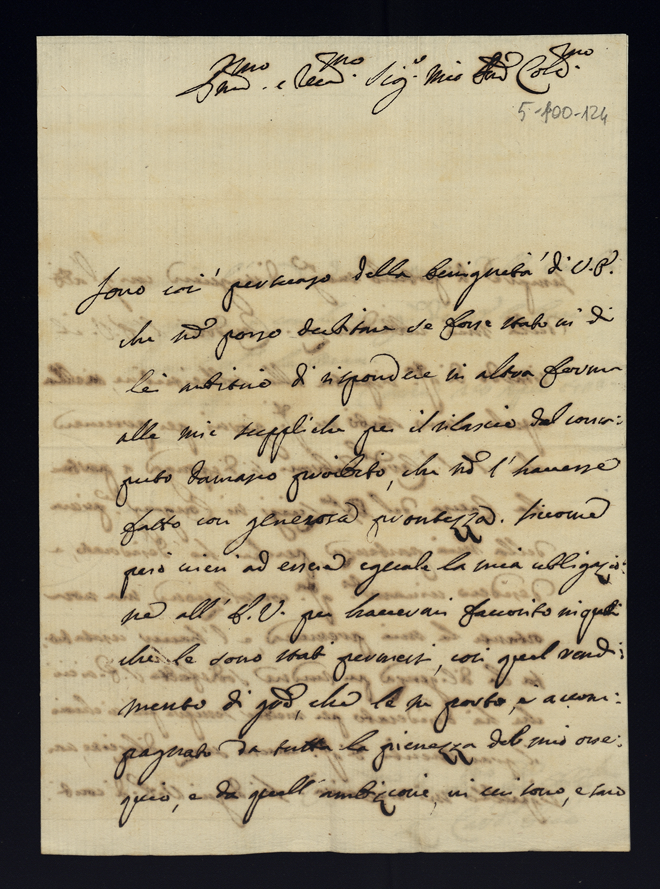 Illmo e Revmo Sigr Mio Prõn Colmo
5-100-124
Sono così persuaso della benignità di V.P.
che nõ posso dubitare se fosse stato in di
lei arbitrio di rispondere in altra forma
alle mie suppliche per il rilascio del consa:
puto damasco proibito, che nõ l'havesse
fatto con generosa prontezza. Siccome
però vieni ad essere eguale la mia obbligazio:
ne all' V. per havervi favorito in quelli
che le sono stati permessi, così quel rendi:
mento di grã, che le ne porto, è accom:
pagnato da tutta la pienezza del mio osse:
quio, e da quell'ambizione, in cui sono, e sarò